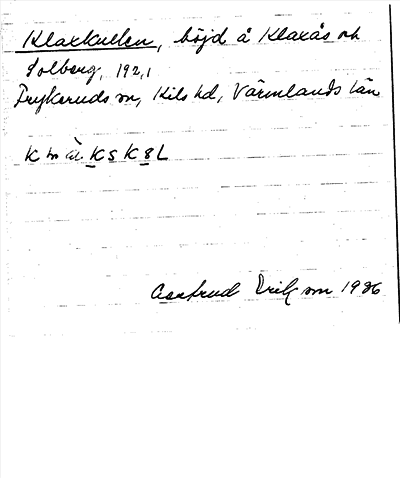 Klaxkullen, höjd å Klaxås och
Solberg, 192,1
Frykeruds sn, Kils hd, Värmlands län
Gertrud Eriksson 1986